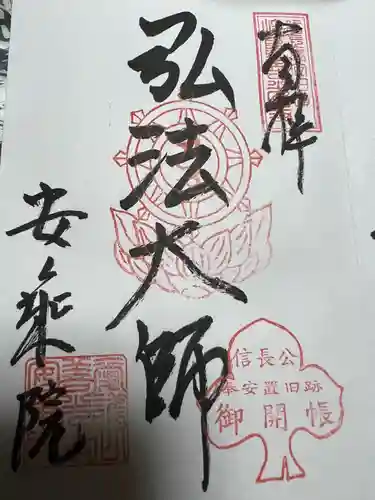 奉拝
弘法大師
安楽院
信長公
奉安置旧跡
御開帳